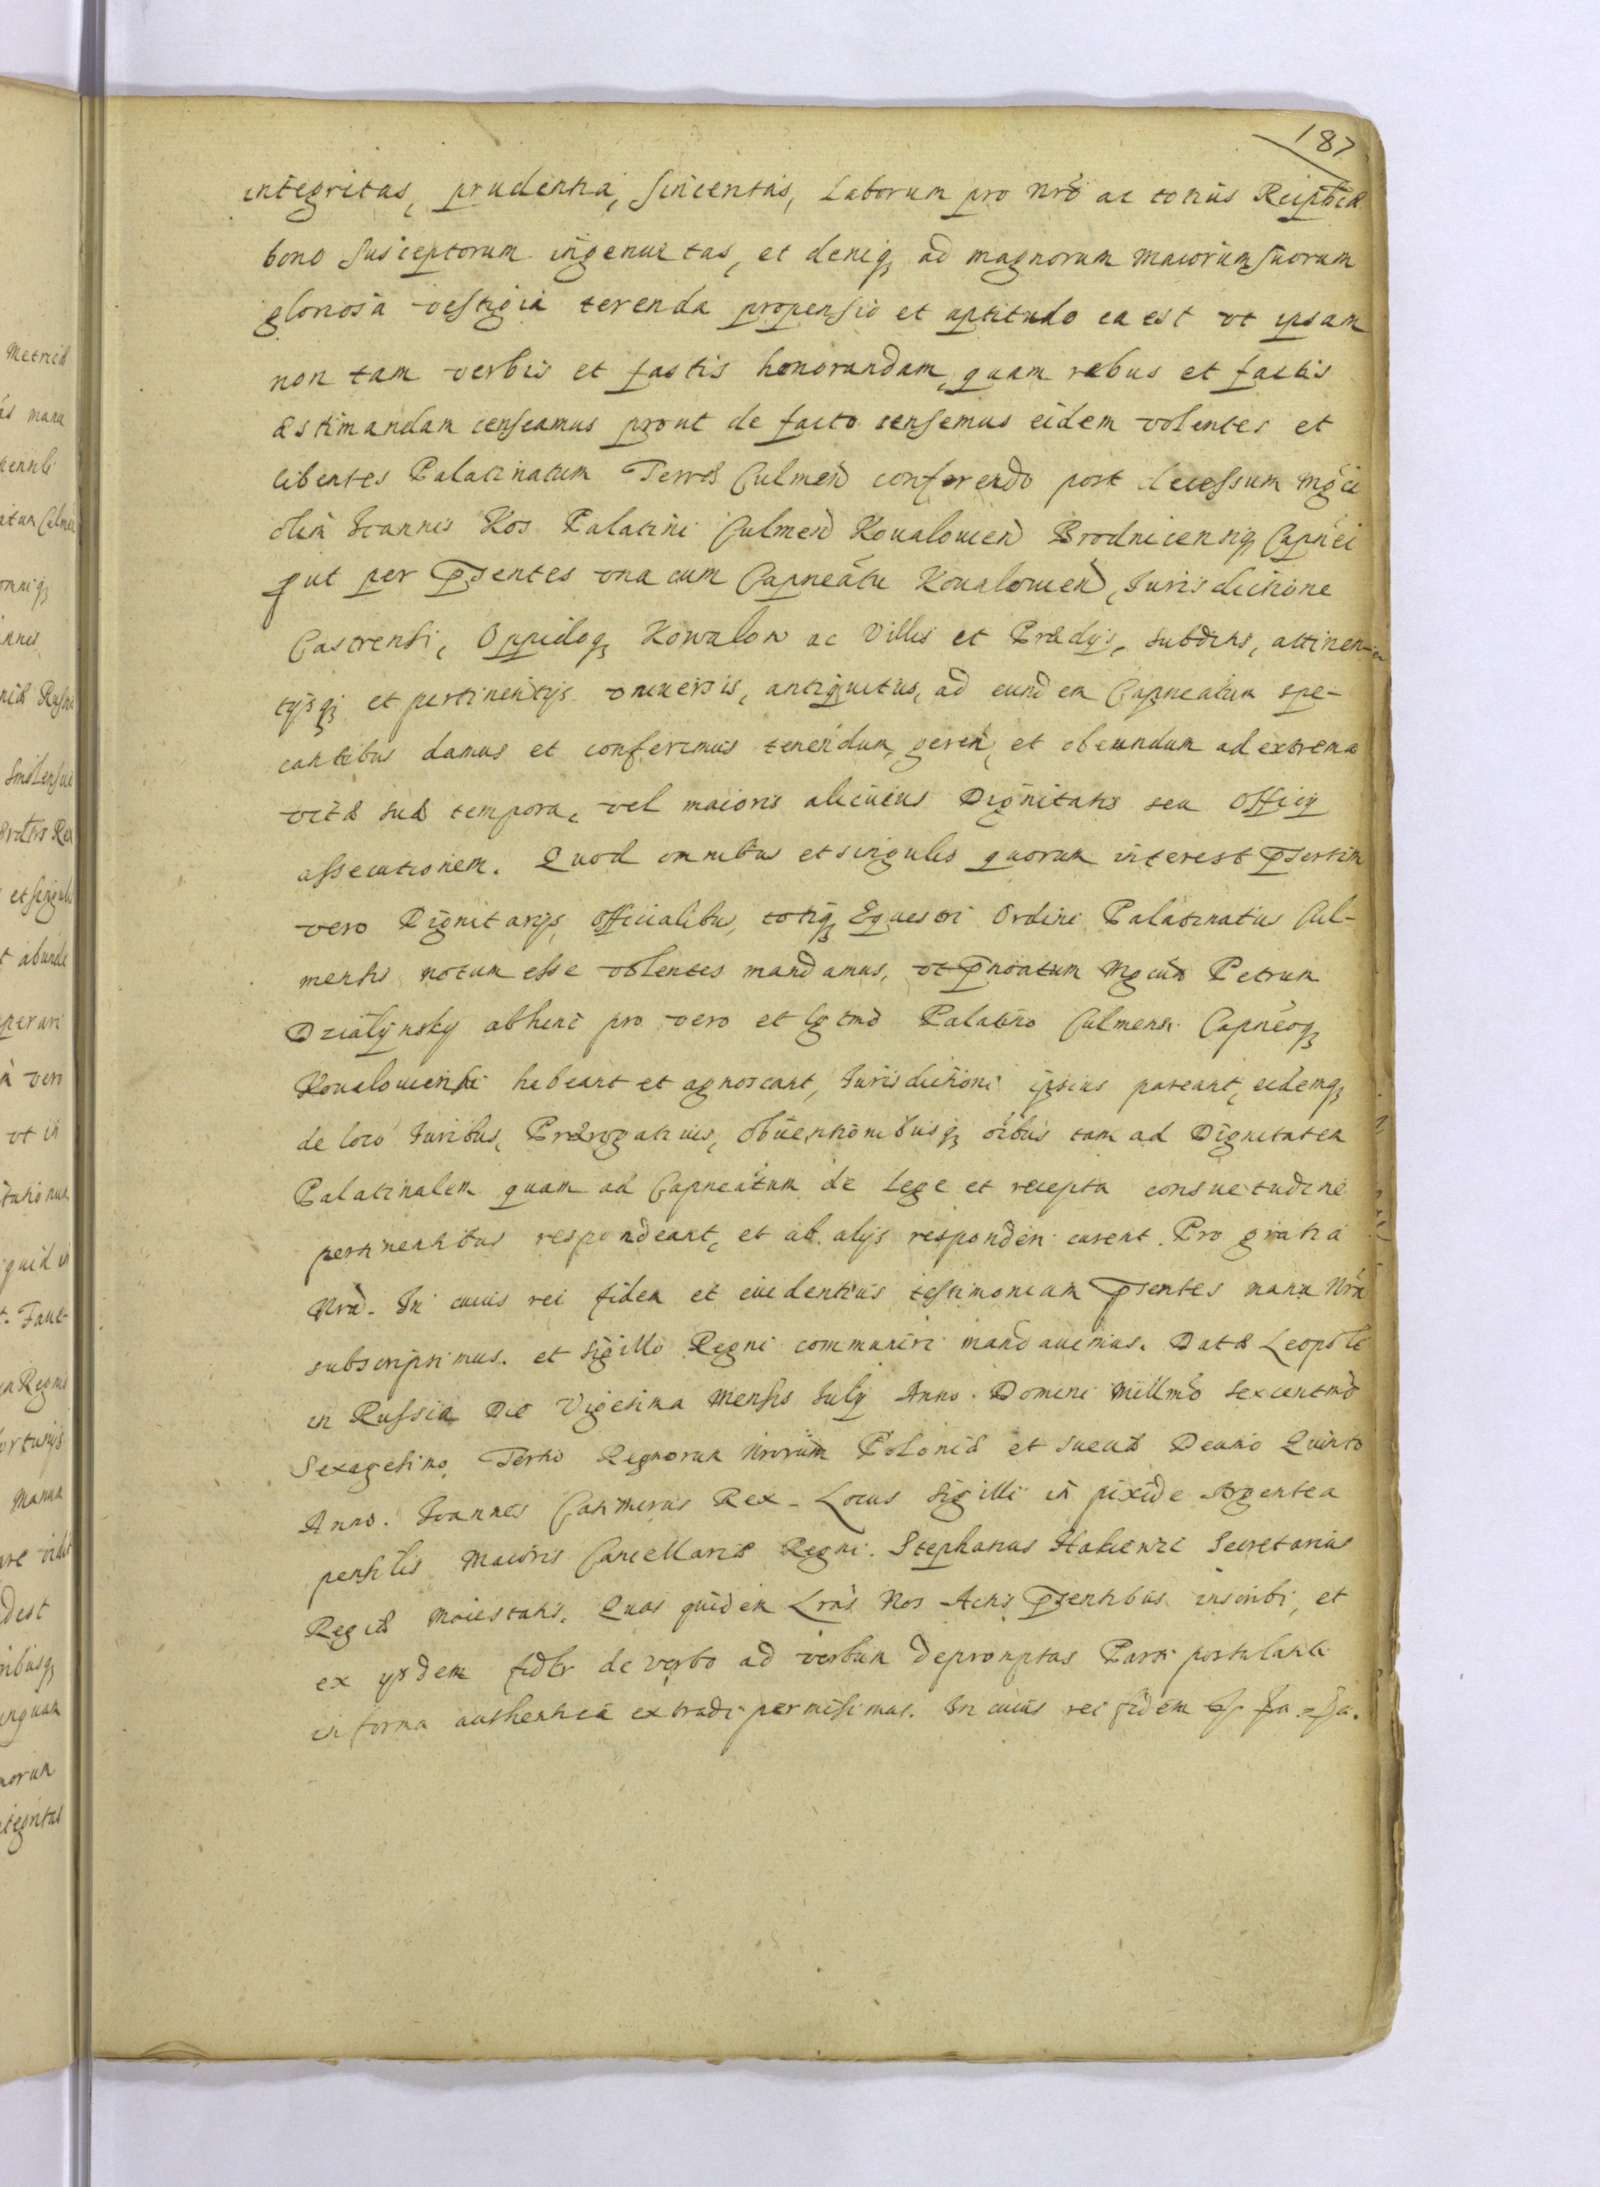 187
integritas, prudentia, sinceritas, Laborum pro nrô ac totius Reipbcæ
bono susceptorum ingenuitas, et deniq; ad magnorum maiorum suorum
gloriosa vestigia terenda propensio et aptitudo ea est vt ipsam
non tam verbis et fastis honorandam, quam rebus et factis
æstimandam censeamus prout de facto censemus eidem volentes et
libentes Palatinatum Terræ Culmeñ conferendo post decessum Mgci
olim Ioannis Kos Palatini Culmeñ Koualoueñ Brodnicensiq; Capnei
put per pṡentes vna cum Capneatu Koualoueñ, Iurisdictione
Castrensi, Oppidoq; Kowalow ac Villis et Prædijs, subditis, attinen-
tijsq; et pertinentijs vniuersis, antiquitus, ad eundem Capneatum spe-
ctantibus damus et conferimus tenendum, gereñ, et obeundum ad extrema
vitæ suæ tempora, vel maioris alicuius Dignitatis seu Officij
assecutionem. Quod omnibus et singulis quorum interest psertim
vero Dignitarijs, Officialibus, totiq; Equestri Ordini Palatinatus Cul-
mensis notum esse volentes mandamus, vt pnoatum Mgcum Petrum
Działÿnsky abhinc pro vero et lgtmo Palatino Culmensi Capneoq;
Koualouiensi habeant et agnoscant, Iurisdictioni ipsius pareant, eidemq;
de loco Iuribus, Prærogatiuis, obuentionibusq; oibus tam ad Dignitatem
Palatinalem quam ad Capneatum de Lege et recepta consuetudine
pertinentibus respondeant, et ab alijs responderi curent. Pro gratia
Nrâ. In cuius rei fidem et euidentius testimonium psentes manu Nrâ
subscripsimus. et sigillo Regni communiri mandauimus. Datæ Leopoli
in Russia Die Vigesima Mensis Iulij Anno Domini Millmo Sexcentmo
Sexagesimo Tertio Regnorum Nrorum Poloniæ et Sueciæ Decimo Quinto
Anno. Ioannes Casimirus Rex _ Locus Sigilli in pixide Argentea
pensilis Maioris Cancellariæ Regni. Stephanus Hakienze Secretarius
Regiæ Maiestatis. Quas quidem Lras Nos Actis psentibus inscribi, et
ex ijsdem fidlr de verbo ad verbum depromptas Parti postulanti
in forma authentica extradi permisimus. In cuius rei fidem